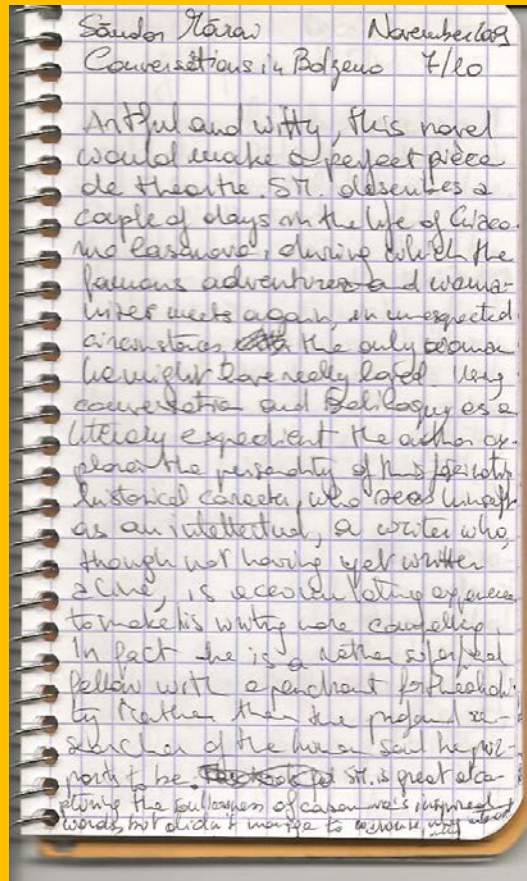 Sándor Márai November 2009
Conversations in Bolzano 7/10
Artful and witty, this novel
would make a perfect pièce
de theatre. SM. describes a
couple of days in the life of Giaco-
mo Casanova, during which the
famous adventurer and woma-
nizer meets again, in unexpected
circumstances the only woman
he might have really loved. Using
conversation and soliloquy as a
literary expedient the author ex-
plores the personality of this fascinating
historical caracter, who sees himself
as an intellectual, a writer who,
though not having yet written
a line, is accumulating experience
to make his writing more compelling.
In fact he is a rather superficial
fellow with a penchant for theatrali-
ty rather than the profound re-
searcher of the human soul he pur-
ports to be. SM. is great at ca-
pturing the soullessness of casanova's inspired
words, but didn't manage to